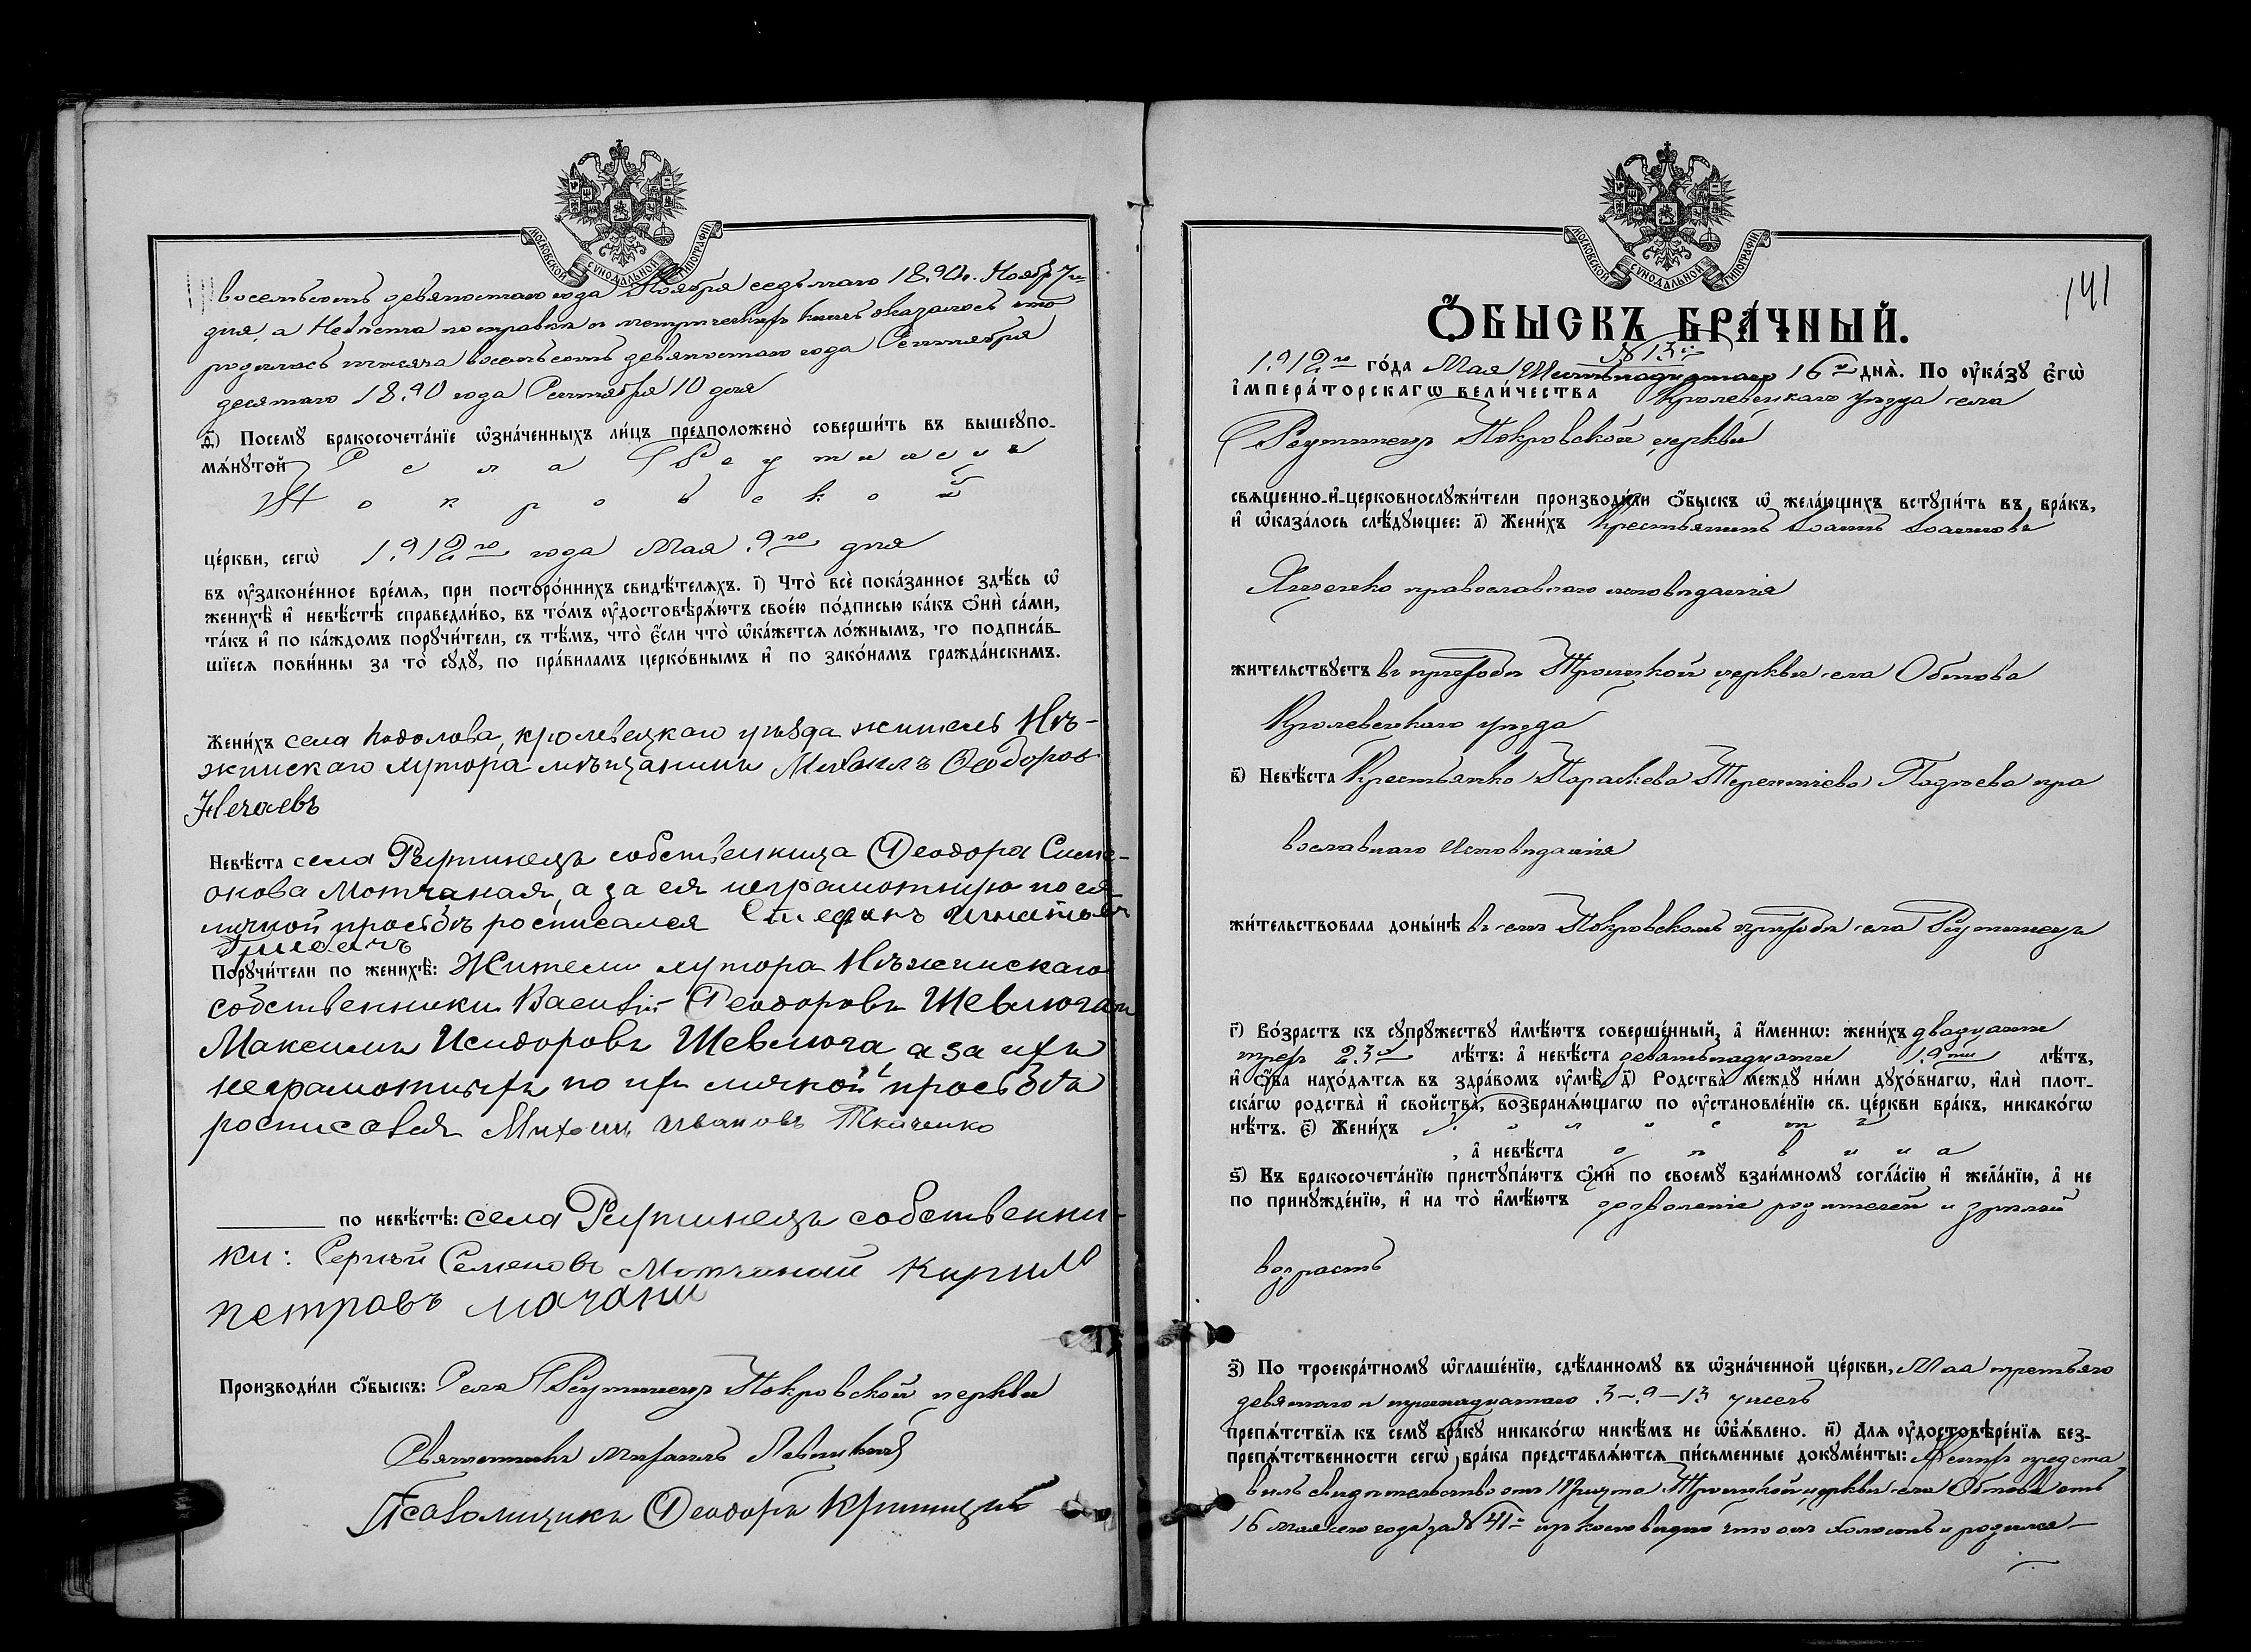 МОСКОВСКОЙ СѴНОДАЛЬНОЙ ТИПОГРАФІИ
восемьсотъ девяностаго года Ноября седьмаго 18.90 г. Ноября 7го
дня, а Невѣста по справкѣ въ метрическихъ книгахъ оказалось что
родилась тысяча восемьсотъ девяностаго года Сентября
десятаго 18.90 года Сентября 10 дня
Посемꙋ бракосочета́нїе ѡзна́ченныхъ ли́цъ предположено̀ соверши́ть въ вышеꙋпо-
мѧ́нꙋтой Села Реутинецъ
Покровской
це́ркви, сегѡ̀ 1.912го года Мая .9го дня
въ ᲂу҆законе́нное вре́мѧ, при посторо́ннихъ свидѣ́телѧхъ. і҃) Что̀ всѐ пока́занное здѣ́сь ѡ҆
женихѣ̀ и҆ невѣ́стѣ справедли́во, въ то́мъ ᲂу҆достовѣрѧ́ютъ свое́ю по́дписью ка́къ ѻ҆нѝ са́ми,
та́къ и҆ по ка́ждомъ порꙋчи́тели, съ тѣ́мъ, что̀ є҆́сли что̀ ѡ҆ка́жетсѧ ло́жнымъ, то подписа́в-
шїесѧ пови́нны за то̀ сꙋдꙋ̀, по пра́виламъ церко́внымъ и҆ по зако́намъ гражда́нскимъ.
Жени́хъ села Подолова, кролевецкаго уѣзда житель Нѣ-
жинскаго хутора мѣщанинъ Михаилъ Ѳеодоровъ
Нечаевъ
Невѣ́ста села Реутинецъ собственница Ѳеодора Симе-
онова Мотчаная, а за ея неграмотную по ея
личной просьбѣ росписался Стефанъ Игнатовъ
Порꙋчи́тели по женихѣ̀: Жители хутора Нѣжинскаго
собственники Василій Ѳеодоровъ Шевлюга и
Максимъ Исидоровъ Шевлюга, а за ихъ
неграмотныхъ по ихъ личной просьбѣ
росписался Михаилъ Ивановъ Ткаченко
по невѣ́стѣ: села Реутинецъ собственни-
ки: Сергѣй Семеновъ Мотчаный Кирилъ
петровъ мачани
Производи́ли ѻ҆́быскъ: Села Реутинецъ Покровской церкви
Священникъ Михаилъ Левицкій
Псаломщикъ Ѳеодоръ Криницкій
МОСКОВСКОЙ СѴНОДАЛЬНОЙ ТИПОГРАФІИ
141
Ѻ҆́БЫСКЪ БРА́ЧНЫЙ.
№ 13й
1.912го го́да Мая Шестьнадцатаго 16го днѧ̀. По ᲂу҆ка́зꙋ є҆гѡ̀
і҆мпера́торскагѡ вели́чества Кролевецкаго уѣзда села
Реутинецъ Покровской церкви
свѧще́нно-и҆-церковнослꙋжи́тели производи́ли ѻ҆́быскъ ѡ҆ жела́ющихъ встꙋпи́ть въ бра́къ,
и҆ ѡ҆каза́лось слѣ́дꙋющее: а҃) Жени́хъ Крестьянинъ Іоаннъ Іоанновъ
православнаго исповѣданія
жи́тельствꙋетъ въ приходѣ Троицкой церкви села Обтова
Кролевецкаго уѣзда
в҃) Невѣ́ста Крестьянка Параскева Терентіева пра
вославнаго Исповѣданія
жи́тельствовала доны́нѣ въ семъ Покровскомъ приходѣ села Реутинецъ
г҃) Во́зрастъ къ сꙋпрꙋ́жествꙋ и҆мѣ́ютъ соверше́нный, а҆ и҆́менно: жени́хъ двадцати
трехъ 2.3й лѣ́тъ: а҆ невѣ́ста девятьнадцати 1.9ти лѣ́тъ,
и҆ ѻ҆́ба нахо́дѧтсѧ въ здра́вомъ ᲂу҆мѣ̀. д҃) Родства̀ междꙋ ни́ми дꙋхо́внагѡ, и҆лѝ плот-
ска́гѡ родства̀ и҆ сво́йства̀, возбранѧ́ющагѡ по ᲂу҆становле́нїю св. це́ркви бра́къ, никако́гѡ
нѣ́тъ. є҃) Жени́хъ холостъ
, а҆ невѣ́ста дѣвица
ѕ҃) Къ бракосочета́нїю пристꙋпа́ютъ ѻ҆нѝ по своемꙋ взаи́мномꙋ согла́сїю и҆ жела́нїю, а҆ не
по принꙋжде́нїю, и҆ на то̀ и҆мѣ́ютъ дозволеніе родителей и зрѣлый
возрастъ
з҃) По троекра́тномꙋ ѡ҆глаше́нїю, сдѣ́ланномꙋ въ ѡ҆зна́ченной це́ркви, Мая третьяго
девятаго и тринадцатаго 3-9-13 чиселъ
препѧ́тствїѧ къ семꙋ̀ бра́кꙋ никако́гѡ никѣ́мъ не ѡ҆б̾ѧ́влено. и҃) Для ᲂу҆достовѣре́нїѧ без-
препѧ́тственности сегѡ̀ бра́ка представлѧ́ютсѧ пи́сьменные докꙋме́нты: Женихъ предста
вилъ свидѣтельство отъ Причта Троицкой церкви села Обтова отъ
16 мая сего года за № 41й изъ коего видно что онъ холостъ и родился